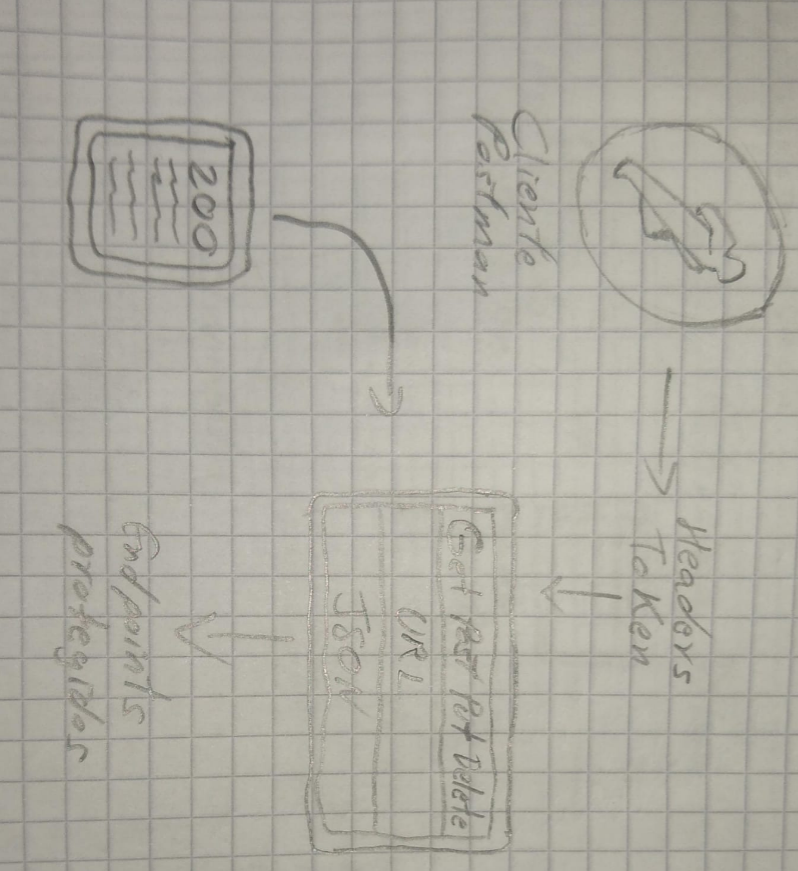 Cliente
Postman
Headers
Token
Get Post Put Delete
URL
JSON
200
Endpoints
protegidos